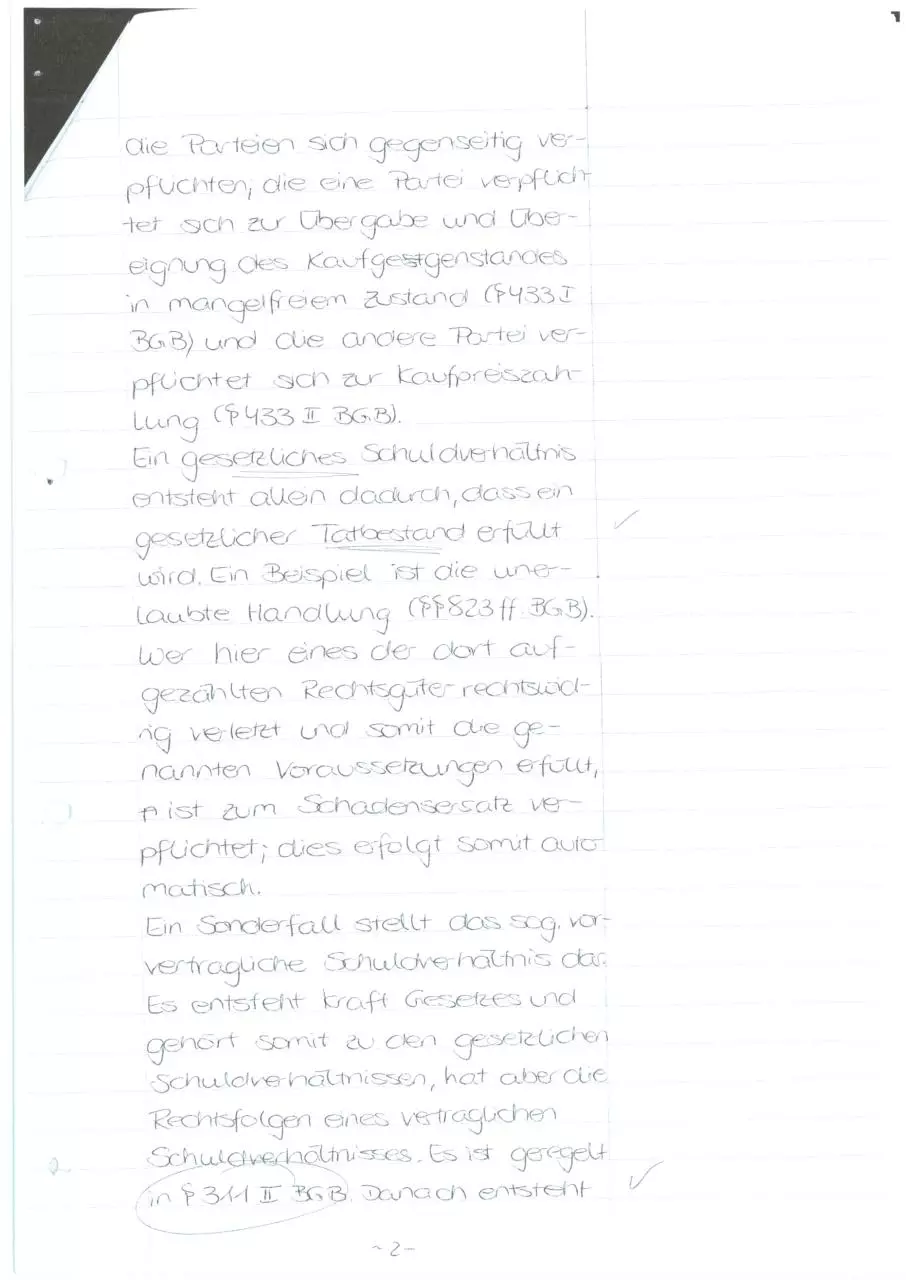 die Parteien sich gegenseitig ver-
pflichten; die eine Partei verpflich-
tet sich zur Übergabe und Über-
eignung des Kaufgestgenstandes
in mangelfreiem Zustand (§ 433 I
BGB) und die andere Partei ver-
pflichtet sich zur Kaufpreiszah-
lung (§ 433 II BGB).
Ein gesetzliches Schuldverhältnis
entsteht allein dadurch, dass ein
gesetzlicher Tatbestand erfüllt
wird. Ein Beispiel ist die uner-
laubte Handlung (§§ 823 ff. BGB).
Wer hier eines der dort auf-
gezählten Rechtsgüter rechtswid-
rig verletzt und somit die ge-
nannten Voraussetzungen erfüllt,
ist zum Schadensersatz ver-
pflichtet; dies erfolgt somit auto
matisch.
Ein Sonderfall stellt das sog. vor-
vertragliche Schuldverhältnis dar.
Es entsteht kraft Gesetzes und
gehört somit zu den gesetzlichen
Schuldverhältnissen, hat aber die
Rechtsfolgen eines vertraglichen
Schuldverhältnisses. Es ist geregelt
in § 311 II BGB. Danach entsteht
~ 2 -